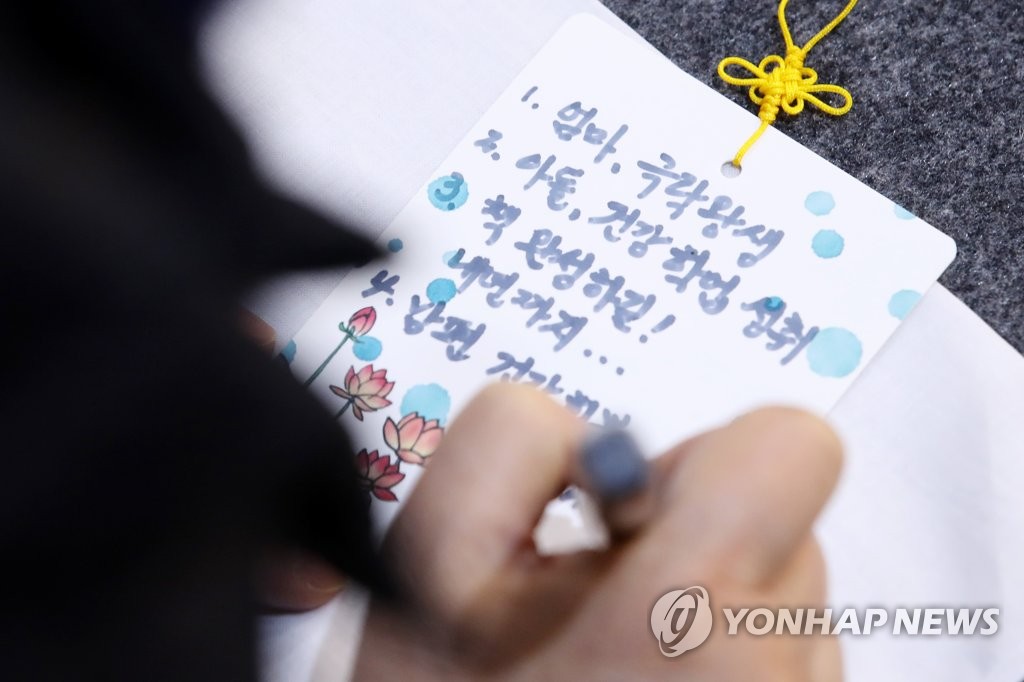 1. 엄마, 극락왕생
2. 아들, 건강 학업 성취
3. 책 완성하길!
내년까지..
4. 남편 건강
YONHAP NEWS